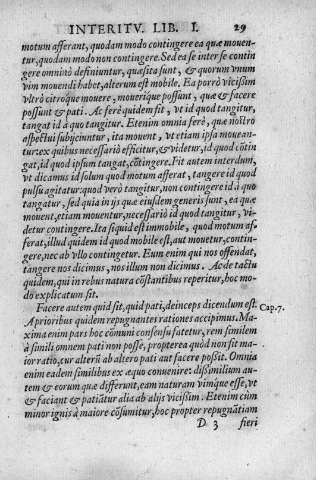 INTERITV. LIB. I. 29
motum afferant, quodam modo contingere ea quæ mouen-
tur, quodam modo non contingere. Sed ea se inter se contin
gere omnino definiuntur, quæ sita sunt, & quorum vnum
vim mouendi habet, alterum est mobile. Ea porrò vicissim
vltrò citroque mouere, mouerique possunt, quæ & facere
possunt & pati. Ac ferè quidem fit, vt id quod tangitur,
tangat id à quo tangitur. Etenim omnia ferè, quæ nostro
aspectui subijciuntur, ita mouent, vt etiam ipsa mouean-
tur: ex quibus necessariò efficitur, & videtur, id quod cōtin
gat, id quod ipsum tangat, cōtingere. Fit autem interdum,
vt dicamus id solum quod motum afferat, tangere id quod
pulsu agitatur: quod verò tangitur, non contingere id à quo
tangatur, sed quia in ijs quæ eiusdem generis sunt, ea quæ
mouent, etiam mouentur, necessariò id quod tangitur, vi-
detur contingere. Ita siquid est immobile, quod motum af-
ferat, illud quidem id quod mobile est, aut mouetur, contin-
gere, nec ab vllo contingetur. Eum enim qui nos offendat,
tangere nos dicimus, nos illum non dicimus. Ac de tactu
quidem, qui in rebus natura cōstantibus reperitur, hoc mo-
do explicatum sit.
Facere autem quid sit, quid pati, deinceps dicendum est. Cap. 7.
A prioribus quidem repugnenter rationes accipimus. Ma-
xima enim pars hoc cōmuni consensu fatetur, rem similem
à simili omnem pati non posse, propterea quòd non sit ma-
ior ratio, cur alterū ab altero pati aut facere possit. Omnia
enim eadem similibus ex æquo conuenire: dissimilium au-
tem & eorum quæ differunt, eam naturam vimque esse, vt
& faciant & patiātur alia ab alijs vicissim. Etenim cùm
minor ignis à maiore cōsumitur, hoc propter repugnātiam
D 3 fieri